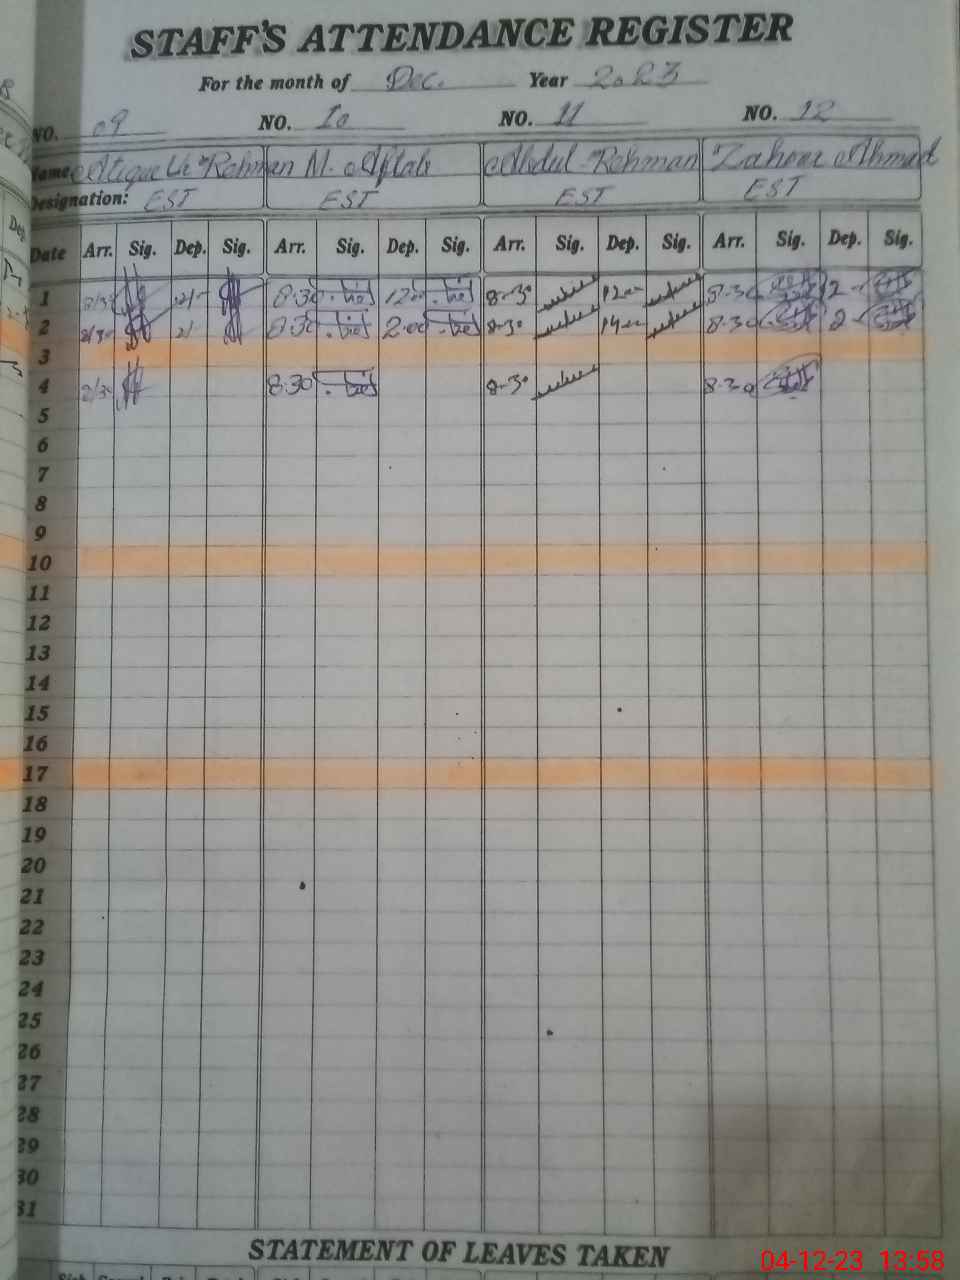 STAFF'S ATTENDANCE REGISTER
For the month of Dec. Year 2023
NO. 09 NO. 10 NO. 11 NO. 12
Name Atique Ur Rehman M. Aftab Abdul Rehman Zahoor Ahmad
Designation: EST EST EST EST
Date Arr. Sig. Dep. Sig. Arr. Sig. Dep. Sig. Arr. Sig. Dep. Sig. Arr. Sig. Dep. Sig.
1 8/30 8:30 12:00 8-30 12:00 8-30 12-
2 8/30 2/ 8:30 2:00 8-30 14:00 8-30 2-
3
4 8/30 8:30 8-30 8-30
5
6
7
8
9
10
11
12
13
14
15
16
17
18
19
20
21
22
23
24
25
26
27
28
29
30
31
STATEMENT OF LEAVES TAKEN
04-12-23 13:58